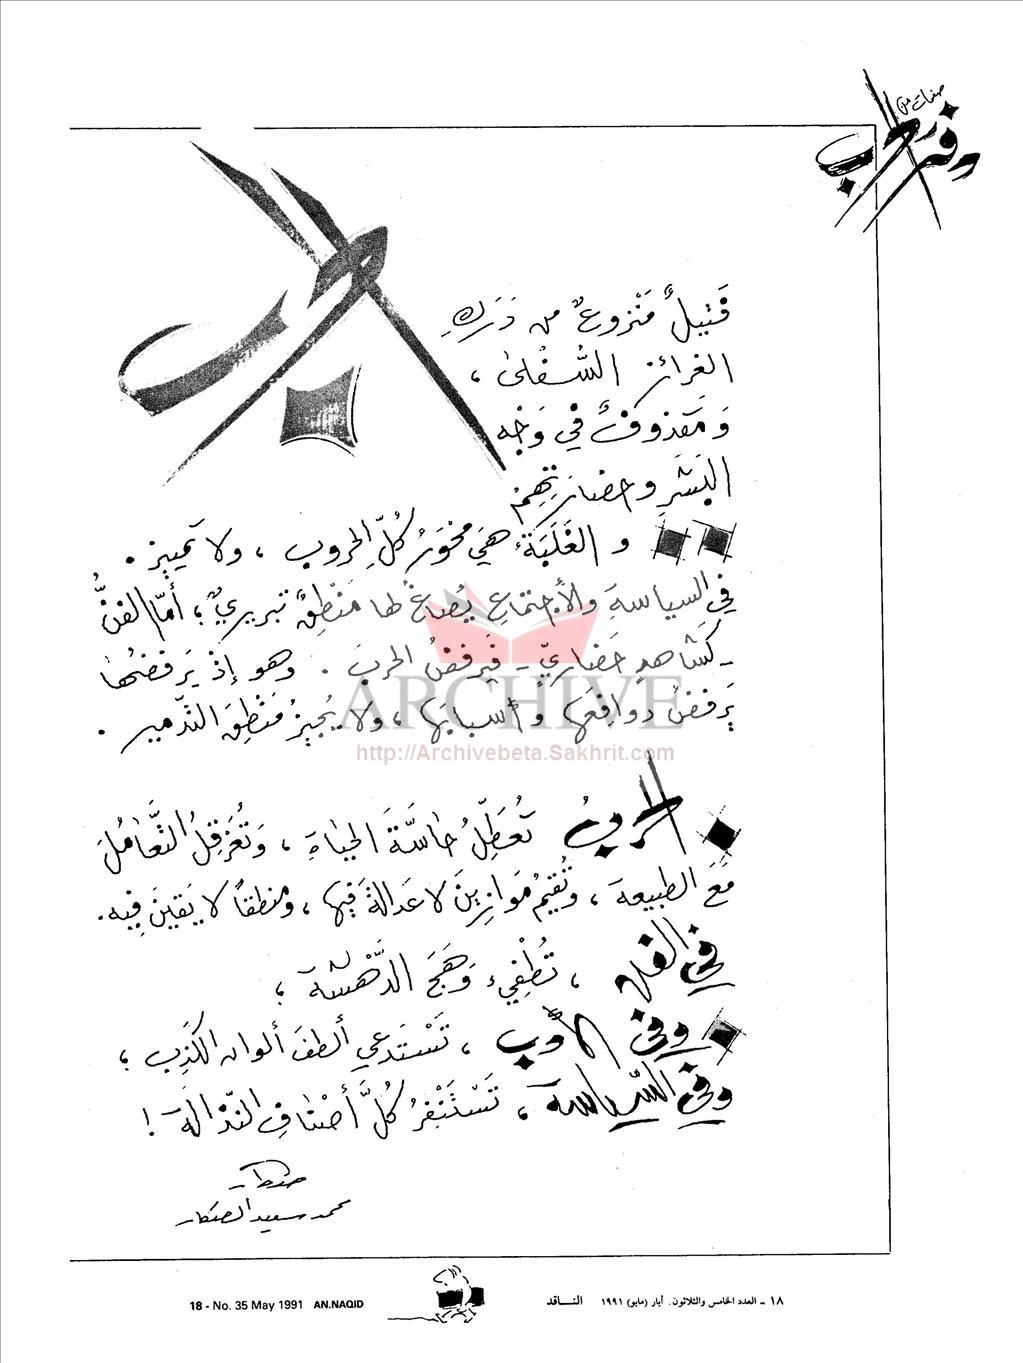 صفحات من
دفتر الحرب
الحرب
فَتيلٌ مَنْزوعٌ من دَرَكِ
الغرائز السُّفْلىٰ ،
وَمَقذوفٌ في وَجْه
البَشَرِ وحضارَتِهِمْ
و الغَلَبَةُ هيَ محْوَرُ كُلِّ الحروب ، ولا تمييز .
في السياسةِ والأجتماعِ يُصاغُ لها مَنْطِقٌ تبريريٌ ؛ أمّا الفنُّ
- كشاهدٍ حَضاريٍّ - فيَرفضُ الحربَ . وهو إذْ يَرفضُها
يَرفضُ دوافعَها وأسبابَها ، ولا يُجيزُ مَنْطِقَ التدّمير .
الحربُ تُعَطِّلُ حاسَّةَ الحياةِ ، وَتُعَرْقِلُ التَّعامُلَ
مَعَ الطبيعة ، وتُقيمُ مَوازينَ لا عَدالةَ فيها ، ومنطقاً لا يَقينَ فيه .
في الفن ، تُطْفِيء وَهَجَ الدَّهْشة ؛
وفي الأدب ، تَسْتَدعي ألطفَ ألوان الكَذِب ؛
وفي السّياسة ، تَسْتَنْفِرُ كُلَّ أصْنافِ النّذالة !
محمد سعيد الصكار
ARCHIVE
http://Archivebeta.Sakhrit.com
18 - No. 35 May 1991 AN.NAQID
١٨ - العدد الخامس والثلاثون. أيار (مايو) ١٩٩١ النــاقد